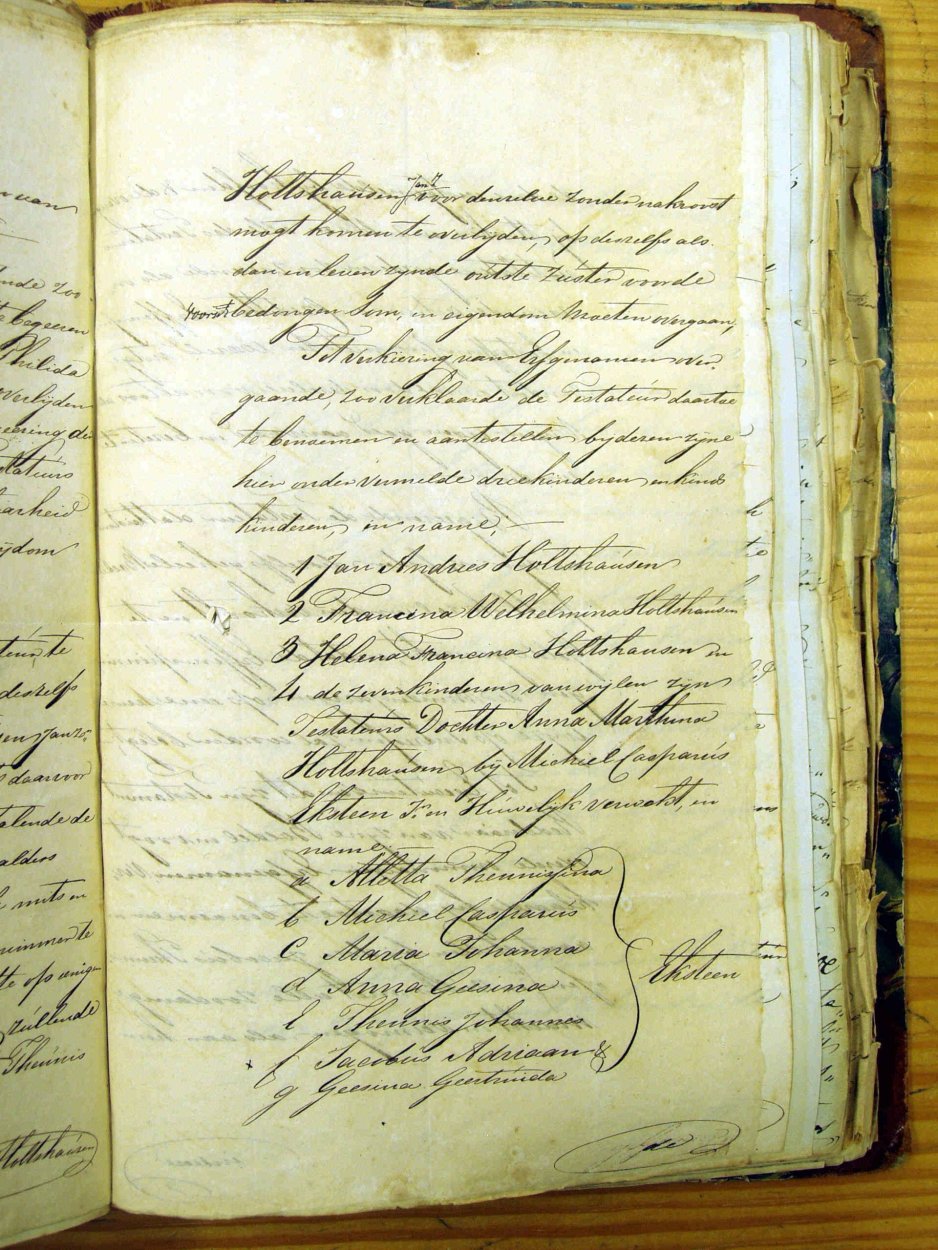 Holtshausen Jan Zr voor denzelve zonder nakroost
mogt komen te overlyden, op deszelfs als
dan in leven zynde outste Zuster voor de
voorsz bedongen Som, in eigendom moeten overgaan,
Tot verkiering van Erfgenamen over
gaande, zoo verklaarde de Testateur daartoe
te benoemen en aantestellen by deren zyne
hier onder vermelde drie kinderen en kinds
kinderen, in name, :—
1 Jan Andries Holtshausen
2 Francina Welhelmina Holtshausen
3 Helena Francina Holtshausen en
4 de zeven kinderen van wylen zyn
Testateurs Dochter Anna Marthina
Holtshausen by Michiel Casparus
Eksteen Jr. in Huwelyk verwekt, en
name
a Alletta Theunissina
b Michiel Casparus
c Maria Johanna
d Anna Geesina
e Theunis Johannes
f Jacobus Adriaan &
g Geesina Geertruida
Eksteen
van
begeeren
Philida
overlyden
deszelfs
daarvoor
zullende
Theunis
Holtshausen